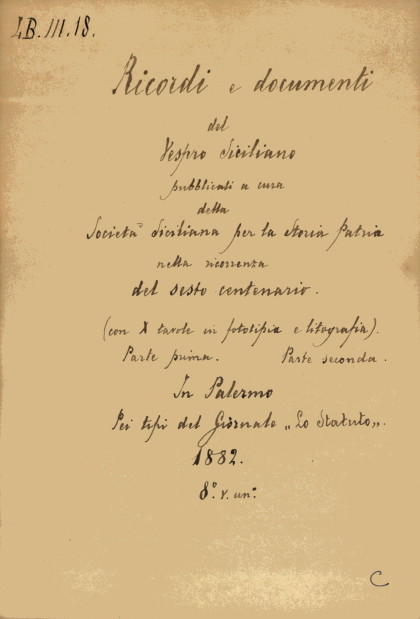 LB.III.18.
Ricordi e documenti
del
Vespro Siciliano
pubblicati a cura
della
Società Siciliana per la Storia Patria
nella ricorrenza
del sesto centenario.
(con X tavole in fototipia e litografia).
Parte prima. Parte seconda.
In Palermo
Pei tipi del Giornale „Lo Statuto„.
1882.
8.° v. un.°
C